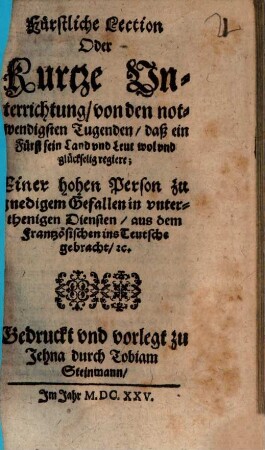 Fürstliche Lection
Oder
Kurtze Vn-
terrichtung/ von den not-
wendigsten Tugenden/ daß ein
Fürst sein Land vnd Leut wol vnd
glückselig regiere;
Einer hohen Person zu
gnedigem Gefallen in vnter-
thenigen Diensten/ aus dem
Frantzösischen ins Teutsche
gebracht/ ꝛc.
Gedruckt vnd vorlegt zu
Jehna durch Tobiam
Steinmann/
Im Jahr M.DC.XXV.